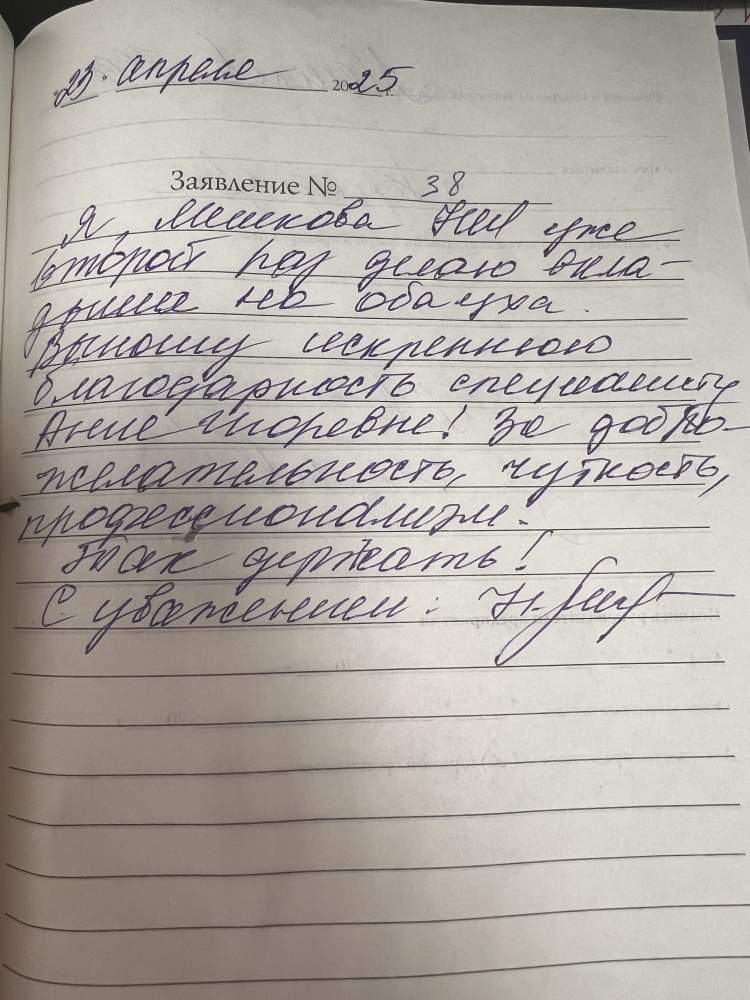 "23" апреля 2025 г.
Заявление № 38
Я, Мешкова НИ уже
второй раз делаю вкла-
дыши на оба уха.
Выношу искреннюю
благодарность специалисту
Анне Игоревне! За добро-
желательность, чуткость,
профессионализм.
Так держать!
С уважением: